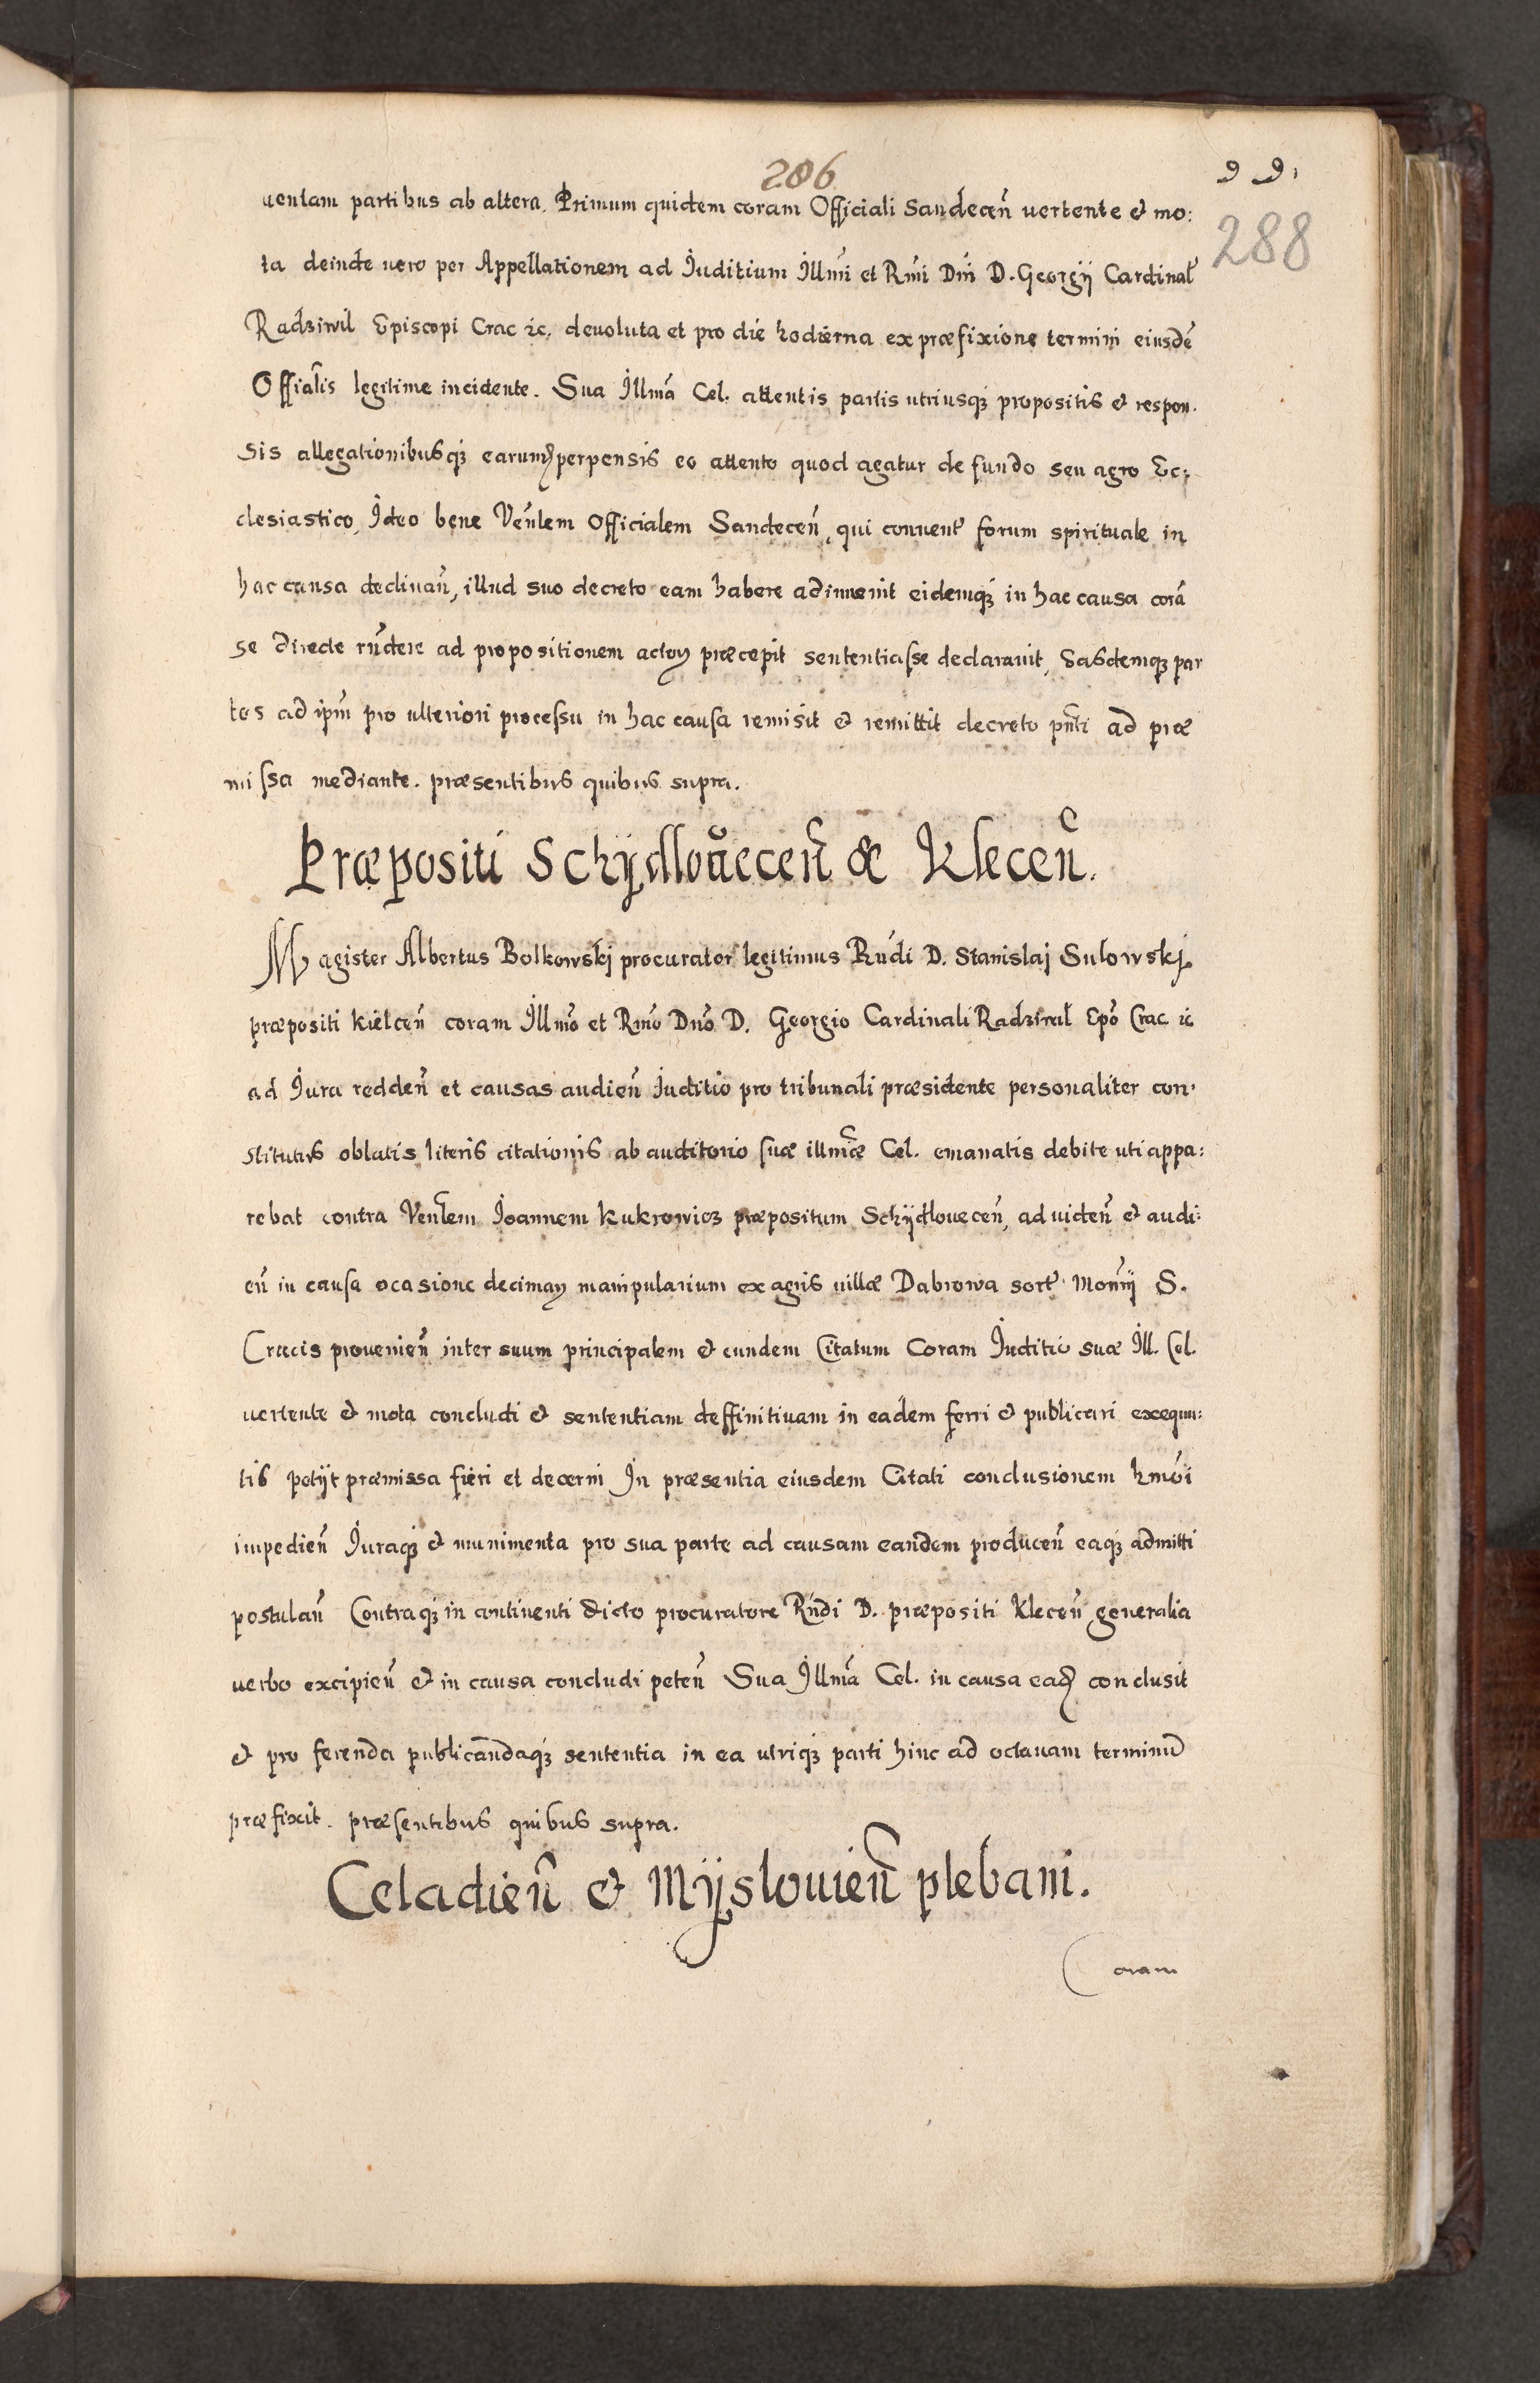 206
99.
288
uentam partibus ab altera. Primum quidem coram Officiali Sandeceñ uertente & mo:
ta deinde uero per Appellationem ad Juditium Illmi et Rmi Dñi D. Georgij Cardinal
Radziwil Episcopi Crac ic. deuoluta et pro die hodierna ex præfixione termini eiusdē
Offialis legitime incidente. Sua Illma Cel. attentis partis utriusq; propositis & respon.
sis allegationibusq; earum perpensis eo attento quod agatur de fundo seu agro Ec:
clesiastico, Ideo bene Venlem Officialem Sandeceñ, qui conuent forum spirituale in
hac causa declinañ, illud suo decreto eam habere adinuenit eidemq; in hac causa corā
se directe rñdere ad propositionem actoꝝ præcepit sententiasse declarauit, Easdemq; par
tes ad ipm̃ pro ulteriori processu in hac causa remisit & remittit decreto pñti ad præ
missa mediante. præsentibus quibus supra.
Præpositi Schÿdloueceñ & Kleceñ.
Magister Albertus Bolkowskj procurator legitimus Rñdi D. Stanislaj Sulowskj
præpositi Kielceñ coram Illmo et Rmo Dño D. Georgio Cardinali Radziwil Epo Crac ic
ad Jura reddeñ et causas audieñ Juditio pro tribunali præsidente personaliter con.
stitutus oblatis literis citationis ab auditorio suæ illmæ Cel. emanatis debite uti appa:
rebat contra Venlem Joannem Kukrowicz præpositum Schÿdloueceñ, ad uideñ & audi:
eñ in causa ocasione decimaꝝ manipularium ex agris uillæ Dabrowa sort Monrij S.
Crucis prouenieñ inter suum principalem & eundem Citatum Coram Juditio suæ Ill. Cel.
uertente & mota concludi & sententiam deffinitiuam in eadem ferri & publicari exequu:
tis petÿt præmissa fieri et decerni In præsentia eiusdem Citati conclusionem hmoi
impedieñ Juraq; & munimenta pro sua parte ad causam eandem produceñ eaq; admitti
postulañ Contraq; in continenti dicto procuratore Rñdi D. præpositi Kleceñ generalia
uerbo excipieñ & in causa concludi peteñ Sua Illma Cel. in causa ead conclusit
& pro ferenda publicandaq; sententia in ea utriq; parti hinc ad octauam terminū
præfixit. præsentibus quibus supra.
Celadieñ & Mÿslouieñ plebani.
Coram